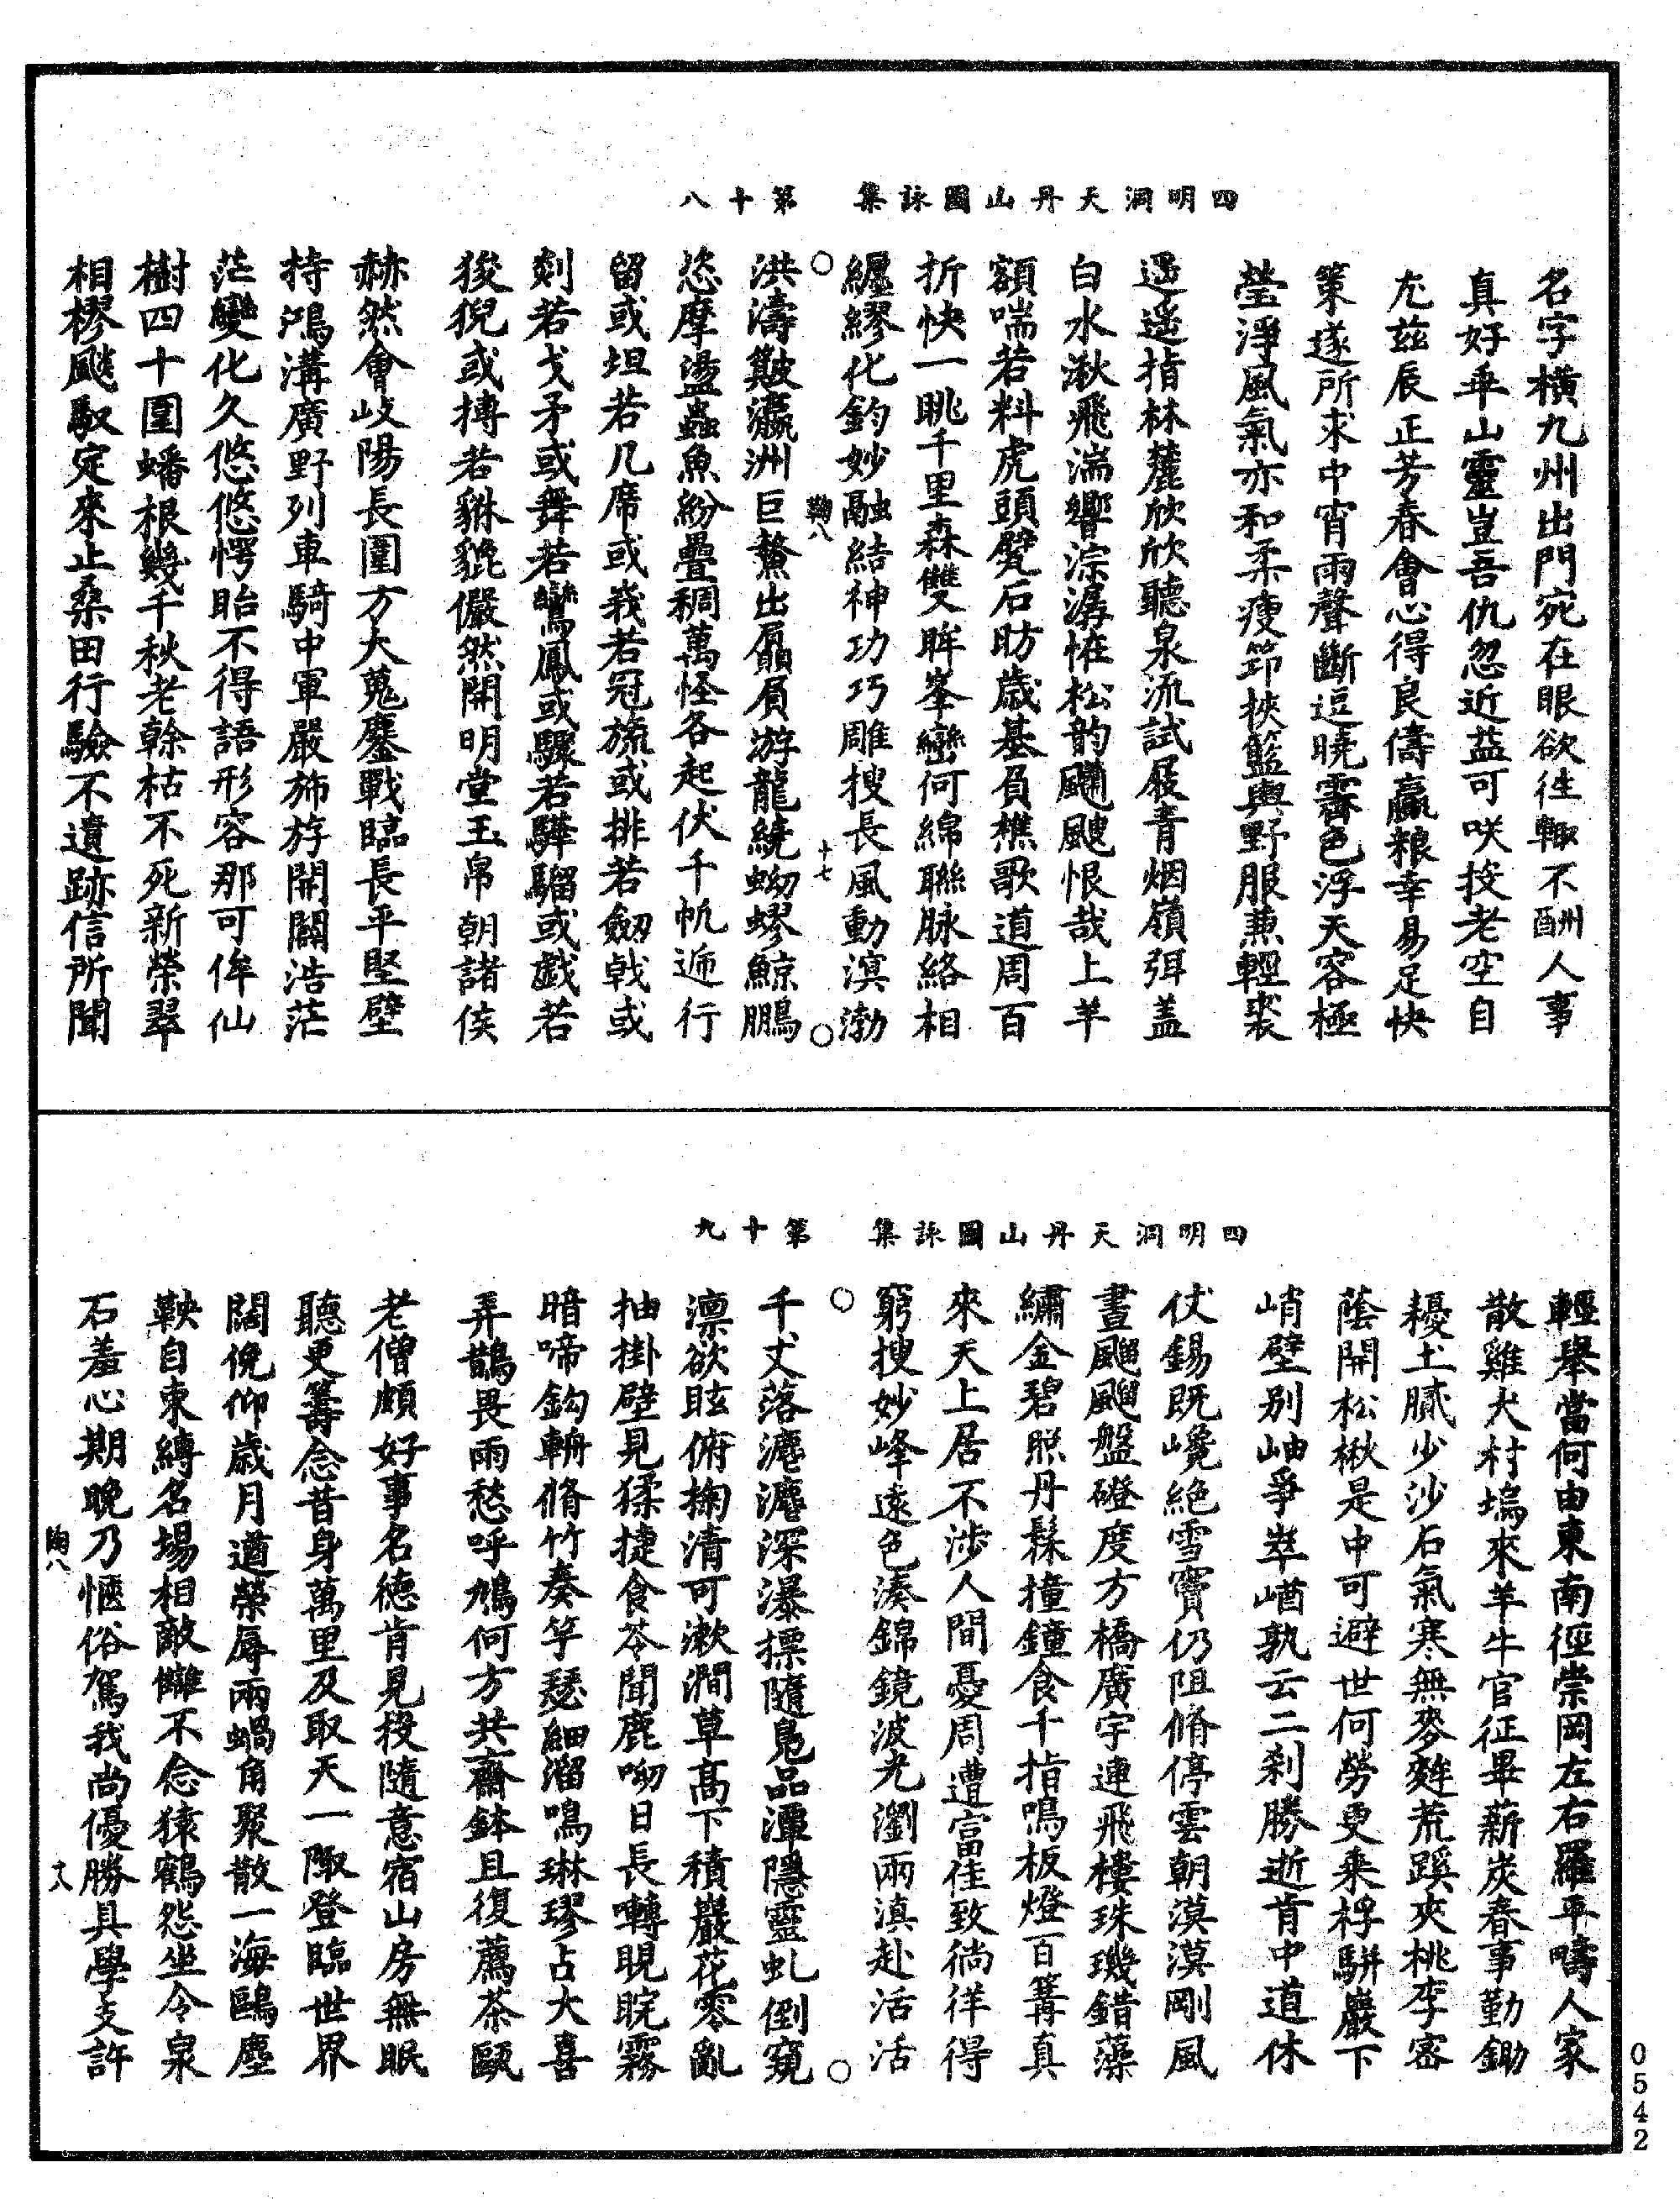 四明洞天丹山圖詠集　第十八
名字橫九州出門宛在眼欲徃輙不酬人事
真好乖山靈豈吾仇忽近益可咲投老空自
尤兹辰正芳春會心得良儔贏粮幸易足快
策遂所求中宵雨聲斷逗曉霽色浮天容極
瑩淨風氣亦和柔瘦筇挾籃輿野服兼輕裘
逶遥指林麓欣欣聽泉流試屐青烟嶺弭蓋
白水湫飛湍響淙潺惟松韵颼飀恨哉上羊
額喘若料虎頭甃石昉歲基負樵歌道周百
折快一眺千里森雙眸峯巒何綿聯脉絡相
纏繆化鈞妙融結神功巧雕搜長風動溟渤
鞠八
十七
洪濤皺瀛洲巨鰲出屭屓游龍繞蚴蟉鯨鵬
恣摩盪蟲魚紛疊稠萬怪各起伏千帆遞行
留或坦若几席或峩若冠旒或排若劒戟或
剡若戈矛或舞若鸞鳳或驟若驊騮或戲若
狻猊或摶若貅貔儼然開明堂玉帛朝諸侯
赫然會岐陽長圍方大蒐鏖戰臨長平堅壁
持鴻溝廣野列車騎中軍嚴斾斿開闢浩茫
茫變化久悠悠愕眙不得語形容那可侔仙
樹四十圍蟠根幾千秋老榦枯不死新榮翠
相樛飈馭定來止桑田行驗不遺跡信所聞
四明洞天丹山圖詠集　第十九
輕舉當何由東南徑崇岡左右羅平疇人家
散雞犬村塢來羊牛官征畢薪炭春事勤鋤
耰土膩少沙石氣寒無麥麰荒蹊夾桃李密
蔭開松楸是中可避世何勞更乗桴駢巖下
峭壁別岫爭崒崷孰云二刹勝逝肯中道休
仗錫既巉絶雪竇仍阻脩停雲朝漠漠剛風
晝颼飀盤磴度方橋廣宇連飛樓珠璣錯藻
繡金碧照丹髹撞鐘食千指鳴板燈百篝真
來天上居不涉人間憂周遭富佳致徜徉得
窮搜妙峰遠色湊錦鏡波光瀏兩滇赴活活
千丈落瀌瀌深瀑摽隨鳬品潭隱靈虬倒窺
凛欲眩俯掬清可漱澗草高下積巖花零亂
抽掛壁見猱捷食苓聞鹿呦日長囀睍睆霧
暗啼鈎輈脩竹奏竽瑟細溜鳴琳璆占大喜
弄鵲畏雨愁呼鳩何方共齋鉢且復薦茶甌
老僧頗好事名德肯見投隨意宿山房無眠
聽更籌念昔身萬里及取天一陬登臨世界
闊俛仰歲月遒榮辱兩蝸角聚散一海鷗塵
鞅自束縛名場相敵讎不念猿鶴怨坐令泉
石羞心期晚乃愜俗駕我尚優勝具學支許
鞠八
十八
0542